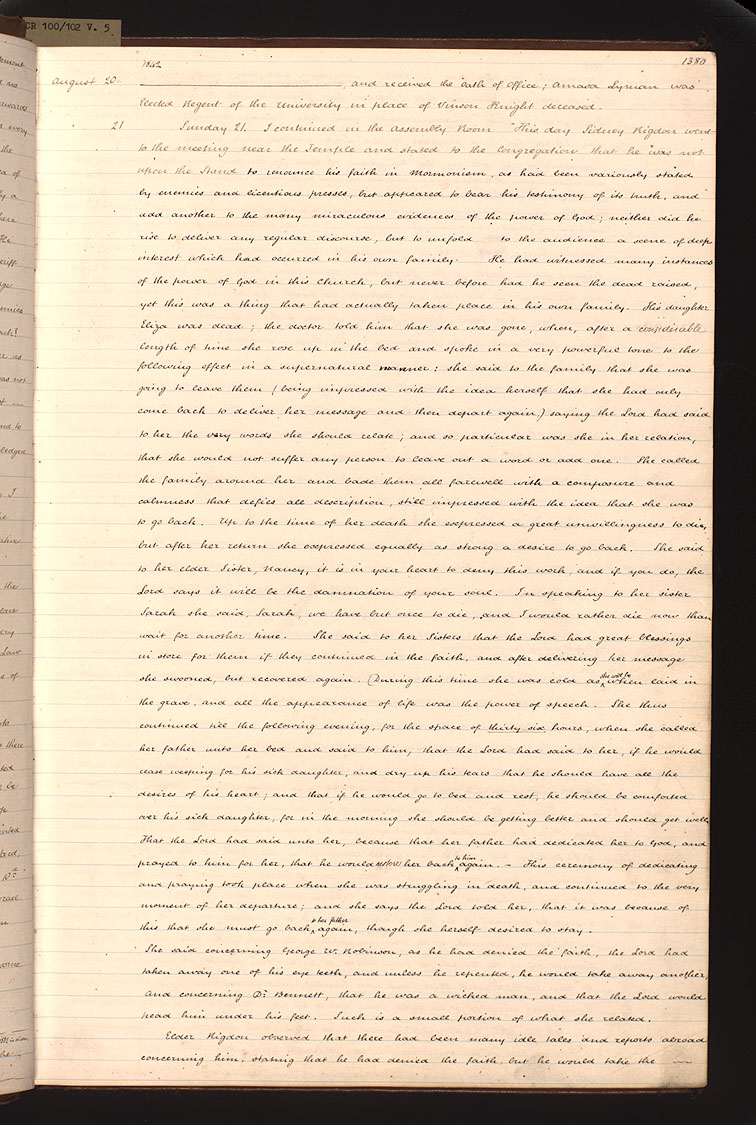 CR 100/102 V. 5
1842
1380
August 20 ———, and received the oath of Office; Amasa Lyman was
Elected Regent of the University in place of Vinson Knight deceased.
21 Sunday 21. I continued in the assembly Room "This day Sidney Rigdon went
to the meeting near the Temple and stated to the Congregation that he "was not
upon the Stand to renounce his faith in Mormonism, as had been variously stated
by enemies and licentious presses, but appeared to bear his testimony of its truth, and
add another to the many miraculous evidences of the power of God; neither did he
rise to deliver any regular discourse, but to unfold to the audience a scene of deep
interest which had occurred in his own family. He had witnessed many instances
of the power of God in this Church, but never before had he seen the dead raised,
yet this was a thing that had actually taken place in his own family. His daughter
Eliza was dead; the doctor told him that she was gone, when, after a considerable
length of time she rose up in the bed and spoke in a very powerful tone to the
following effect in a supernatural manner: she said to the family that she was
going to leave them (being impressed with the idea herself that she had only
come back to deliver her message and then depart again,) saying the Lord had said
to her the very words she should relate; and so particular was she in her relation,
that she would not suffer any person to leave out a word or add one. She called
the family around her and bade them all farewell with a composure and
calmness that defies all description, still impressed with the idea that she was
to go back. Up to the time of her death she expressed a great unwillingness to die,
but after her return she expressed equally as strong a desire to go back. She said
to her elder Sister, Nancy, it is in your heart to deny this work, and if you do, the
Lord says it will be the damnation of your soul. In speaking to her sister
Sarah she said, Sarah, we have but once to die, and I would rather die now than
wait for another time. She said to her Sisters that the Lord had great blessings
in store for them if they continued in the faith, and after delivering her message
she swooned, but recovered again. (During this time she was cold as ^she will be when laid in
the grave, and all the appearance of life was the power of speech. She thus
continued till the following evening, for the space of thirty six hours, when she called
her father unto her bed and said to him, that the Lord had said to her, if he would
cease weeping for his sick daughter, and dry up his tears that he should have all the
desires of his heart; and that if he would go to bed and rest, he should be comforted
over his sick daughter, for in the morning she should be getting better and should get well.
That the Lord had said unto her, because that her father had dedicated her to God, and
prayed to him for her, that he would restore her back ^to him again. – This ceremony of dedicating
and praying took place when she was struggling in death, and continued to the very
moment of her departure; and she says the Lord told her, that it was because of
this that she must go back ^to her father again, though she herself desired to stay.
She said concerning George W. Robinson, as he had denied the faith, the Lord had
taken away one of his eye teeth, and unless he repented, he would take away another,
And concerning Dr. Bennett, that he was a wicked man, and that the Lord would
tread him under his feet. Such is a small portion of what she related.
Elder Rigdon observed that there had been many idle tales and reports abroad
concerning him, stating that he had denied the faith, but he would take the —